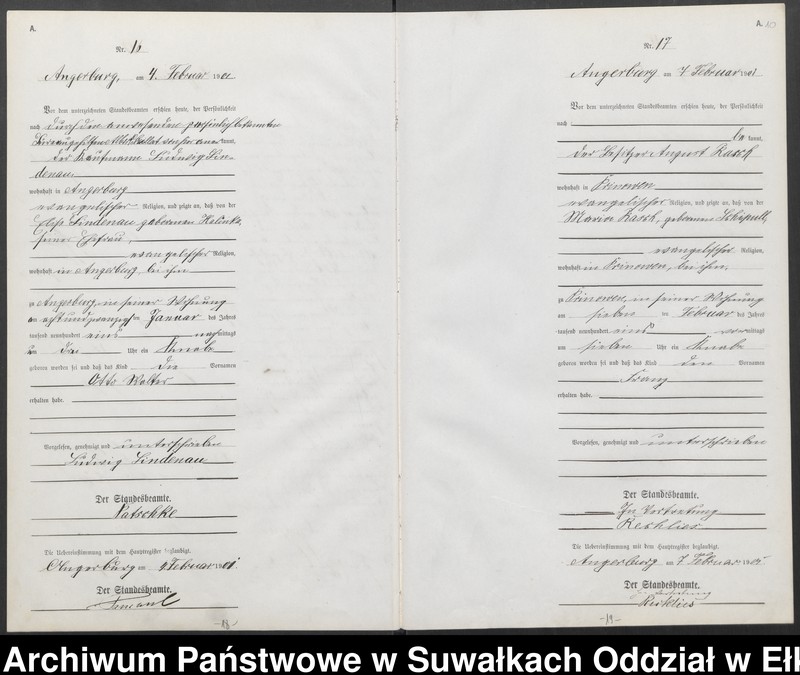 A.
Nr. 16
Angerburg, am 4. Februar 1901
Vor dem unterzeichneten Standesbeamten erschien heute, der Persönlichkeit
nach durch den anwesenden persönlich bekannten
kannt,
der Kaufmann Ludwig Lin-
denau
wohnhaft in Angerburg
evangelischer Religion, und zeigte an, daß von der
Lindenau geborenen
seiner Ehefrau,
evangelischer Religion,
wohnhaft in Angerburg bei ihm
zu Angerburg, in seiner Wohnung
am achtundzwanzigsten Januar des Jahres
tausend neunhundert eins nachmittags
um drei Uhr ein Knabe
geboren worden sei und daß das Kind die Vornamen
Otto Walter
erhalten habe.
Vorgelesen, genehmigt und unterschrieben
Ludwig Lindenau
Der Standesbeamte.
Patschke
Die Uebereinstimmung mit dem Hauptregister beglaubigt.
Angerburg am 4. Februar 1901
Der Standesbeamte.
-18-
A. 10
Nr. 17
Angerburg am 7. Februar 1901
Vor dem unterzeichneten Standesbeamten erschien heute, der Persönlichkeit
nach
be kannt,
der Besitzer August Rasch
wohnhaft in Prinowen
evangelischer Religion, und zeigte an, daß von der
Maria Rasch, geborenen
evangelischer Religion,
wohnhaft in Prinowen, bei ihm,
zu Prinowen, in seiner Wohnung
am sieben ten Februar des Jahres
tausend neunhundert eins vormittags
um sieben Uhr ein Knabe
geboren worden sei und daß das Kind den Vornamen
Franz
erhalten habe.
Vorgelesen, genehmigt und unterschrieben
Der Standesbeamte.
In Vertretung
Reschlies
Die Uebereinstimmung mit dem Hauptregister beglaubigt.
Angerburg am 7. Februar 1901
Der Standesbeamte.
In Vertretung
Reschlies
-19-
Archiwum Państwowe w Suwałkach Oddział w Ełk